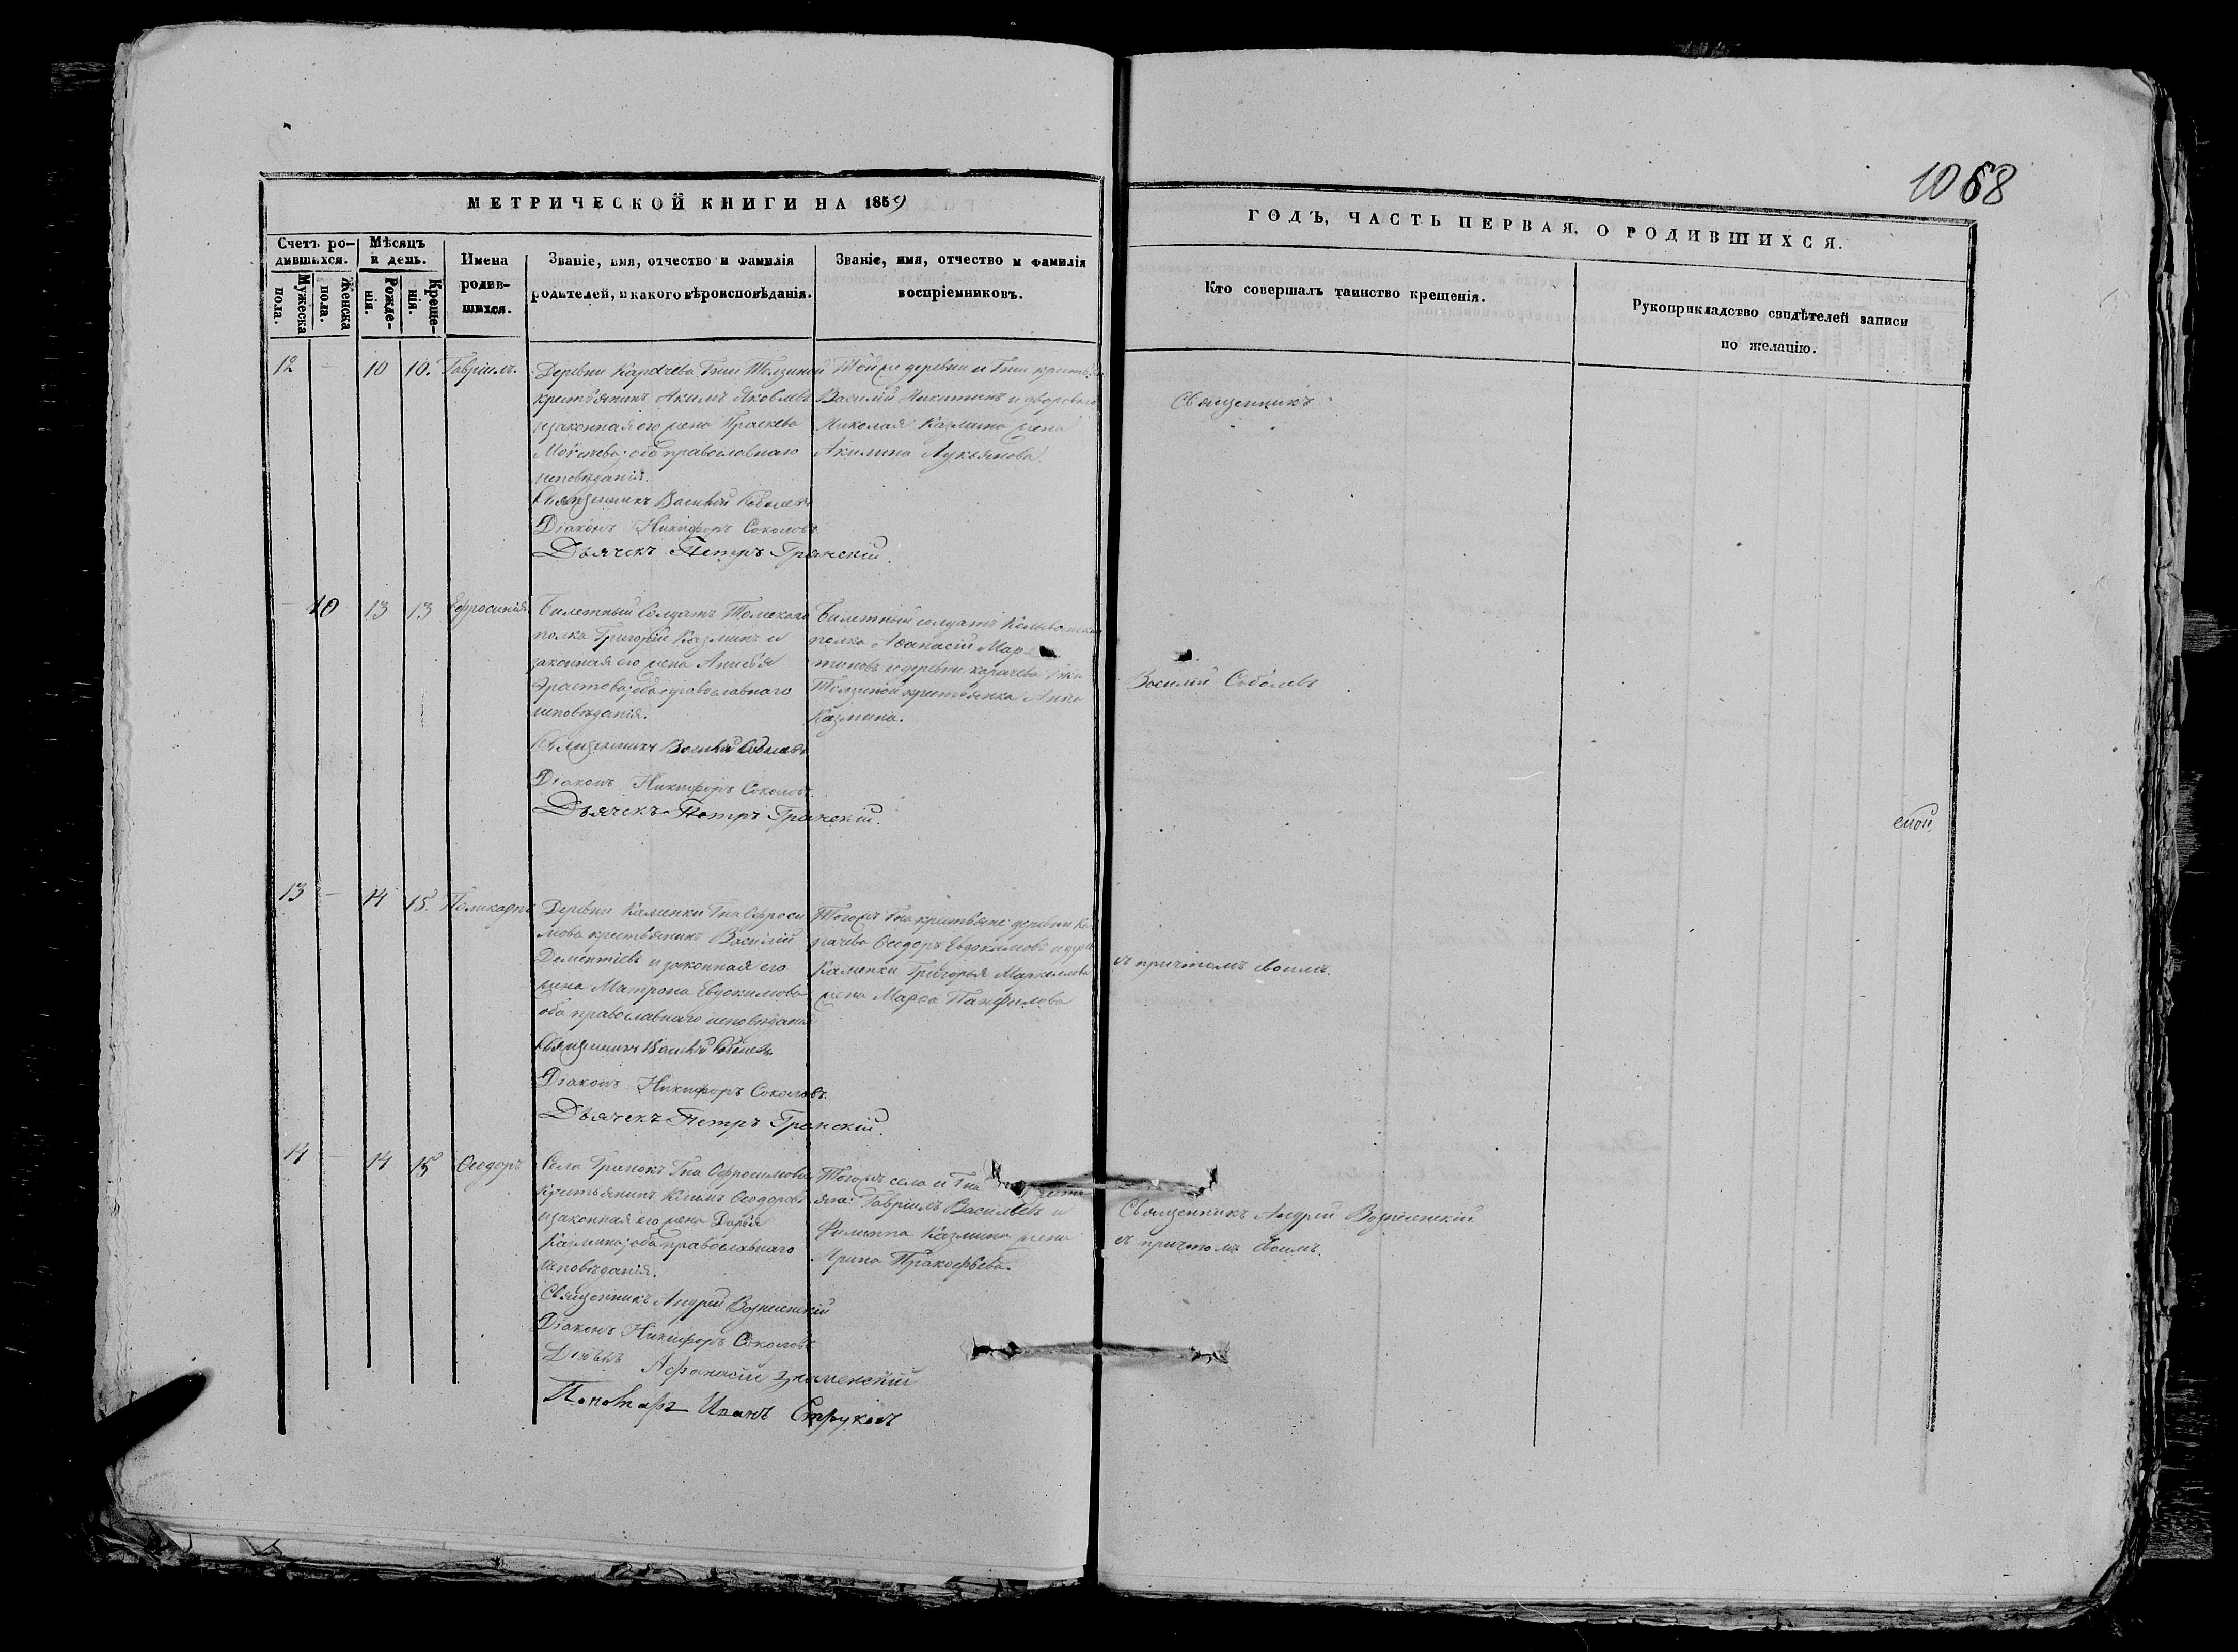 1068
МЕТРИЧЕСКОЙ КНИГИ НА 1859
ГОДЪ, ЧАСТЬ ПЕРВАЯ, О РОДИВШИХСЯ.
Счетъ ро-
дившихся.
Мужеска
пола.
Женска
пола.
Мѣсяцъ
и день.
Рожде-
нія.
Креще-
нія.
Имена
родив-
шихся.
Званіе, имя, отчество и фамилія
родителей, и какого вѣроисповѣданія.
Званіе, имя, отчество и фамилія
воспріемниковъ.
Кто совершалъ таинство крещенія.
Рукоприкладство свидѣтелей записи
по желанію.
12 - 10 10. Гавріилъ.
Деревни Карачева Гжи
крестьянинъ Акимъ Яковлевъ
и законная его жена Праскева
оба православнаго
исповѣданія.
Священникъ Василій Соболевъ
Діаконъ Никифоръ Соколовъ.
Дьячекъ Петръ Гранскій.
Той же деревни и Гжи
Василій Никитинъ и двороваго
Николая Казмина жена
Акилина Лукьянова.
Священникъ
- 10 13 13 Ефросинія
Билетный Солдатъ Томскаго
полка Григорій Казминъ и
законная его жена Анисья
оба православнаго
исповѣданія.
Священникъ Василій Соболевъ
Діаконъ Никифоръ Соколовъ.
Дьячекъ Петръ Гранскій.
Билетный солдатъ
полка Аѳанасій Мар-
тиновъ и деревни Карачева Гжи
крестьянка Анна
Казмина.
Василій Соболевъ
13 - 14 15. Поликарпъ
Деревни Каменки Гна Офроси
мова крестьянинъ Василій
Дементіевъ и законная его
жена Матрона Евдокимова
оба православнаго исповѣданія
Священникъ Василій Соболевъ.
Діаконъ Никифоръ Соколовъ.
Дьячекъ Петръ Гранскій.
Тогожъ Гна крестьяне: деревни Ка
рачева Ѳеодоръ Евдокимовъ и
Каменки Григорья Маркеллова
жена Марѳа Панфилова
съ причтомъ своимъ.
14 - 14 15 Ѳеодоръ
Села Гранокъ Гна Офросимова
Крестьянинъ Климъ Ѳеодоровъ
и законная его жена Дарья
Казмина; оба православнаго
исповѣданія.
Священникъ Андрей Вознесенскій
Діаконъ Никифоръ Соколовъ
Афанасій Знаменскій
Пономарь Иванъ Струковъ
Тогожъ села и Гна
яне: Гавріилъ Васильевъ и
Филиппа Казмина жена
Ирина Пракофьева.
Священникъ Андрей Вознесенскій
съ причтомъ своимъ.